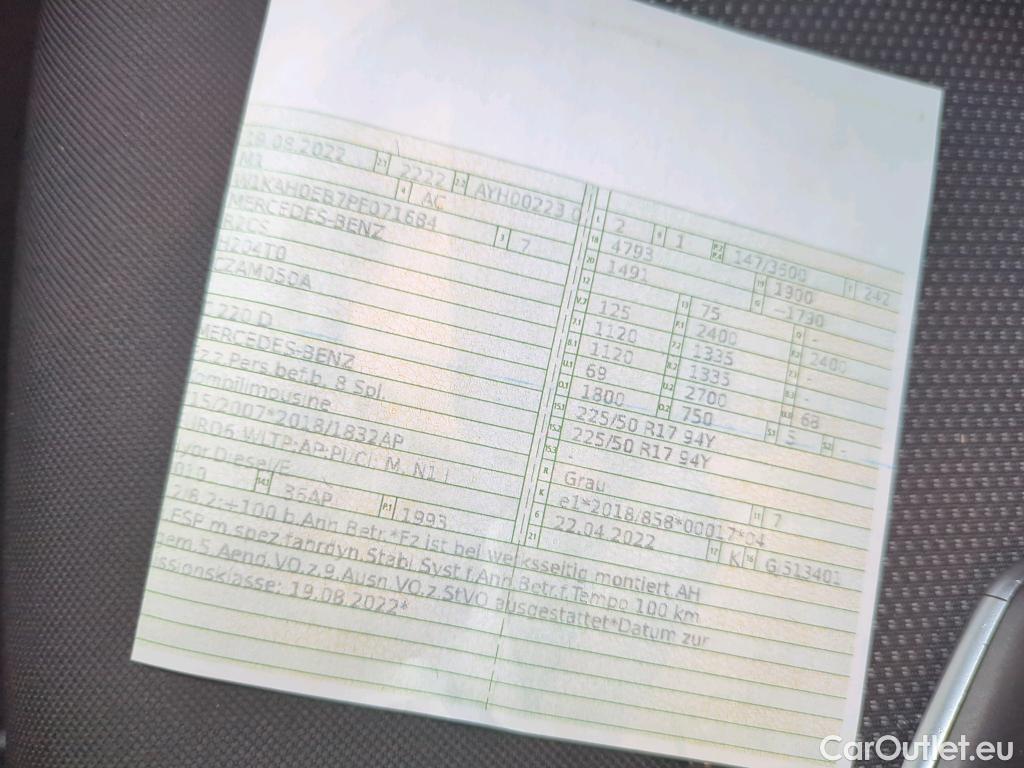 19.08.2022 2.1 2222 2.2 AYH00223 0
M1 4 AC
W1KAH0EB7PF071684 3 7
MERCEDES-BENZ
R2CS
H204T0
CZAM05DA
220 D
MERCEDES-BENZ
z.z.Pers.bef.b. 8 Spl.
ombilimousine
15/2007*2018/1832AP
URO6 WLTP;AP;PI/CI; M, N1 I
Diesel/E
010 14.1 36AP P.1 1993
L 2 9 1 P.2 P.4 147/3500 T 242
18 4793 19 1900
20 1491 G -1730
12 13 75 Q -
V.7 125 F.1 2400 F.2 2400
7.1 1120 7.2 1335 7.3 -
8.1 1120 8.2 1335 8.3 -
U.1 69 U.2 2700 U.3 68
O.1 1800 O.2 750 S.1 5 S.2 -
15.1 225/50 R17 94Y
15.2 225/50 R17 94Y
15.3 -
R Grau 11 7
K e1*2018/858*00017*04
6 22.04.2022 17 K 16 GJ513401
21
2/8.2:+100 b.Anh.Betr.*Fz ist bei werksseitig montiert.AH
ESP m.spez.fahrdyn.Stabi.Syst.f.Anh.Betr.f.Tempo 100 km
gem.5.Aend.VO.z.9.Ausn.VO.z.StVO ausgestattet*Datum zur
ssionsklasse: 19.08.2022*
CarOutlet.eu